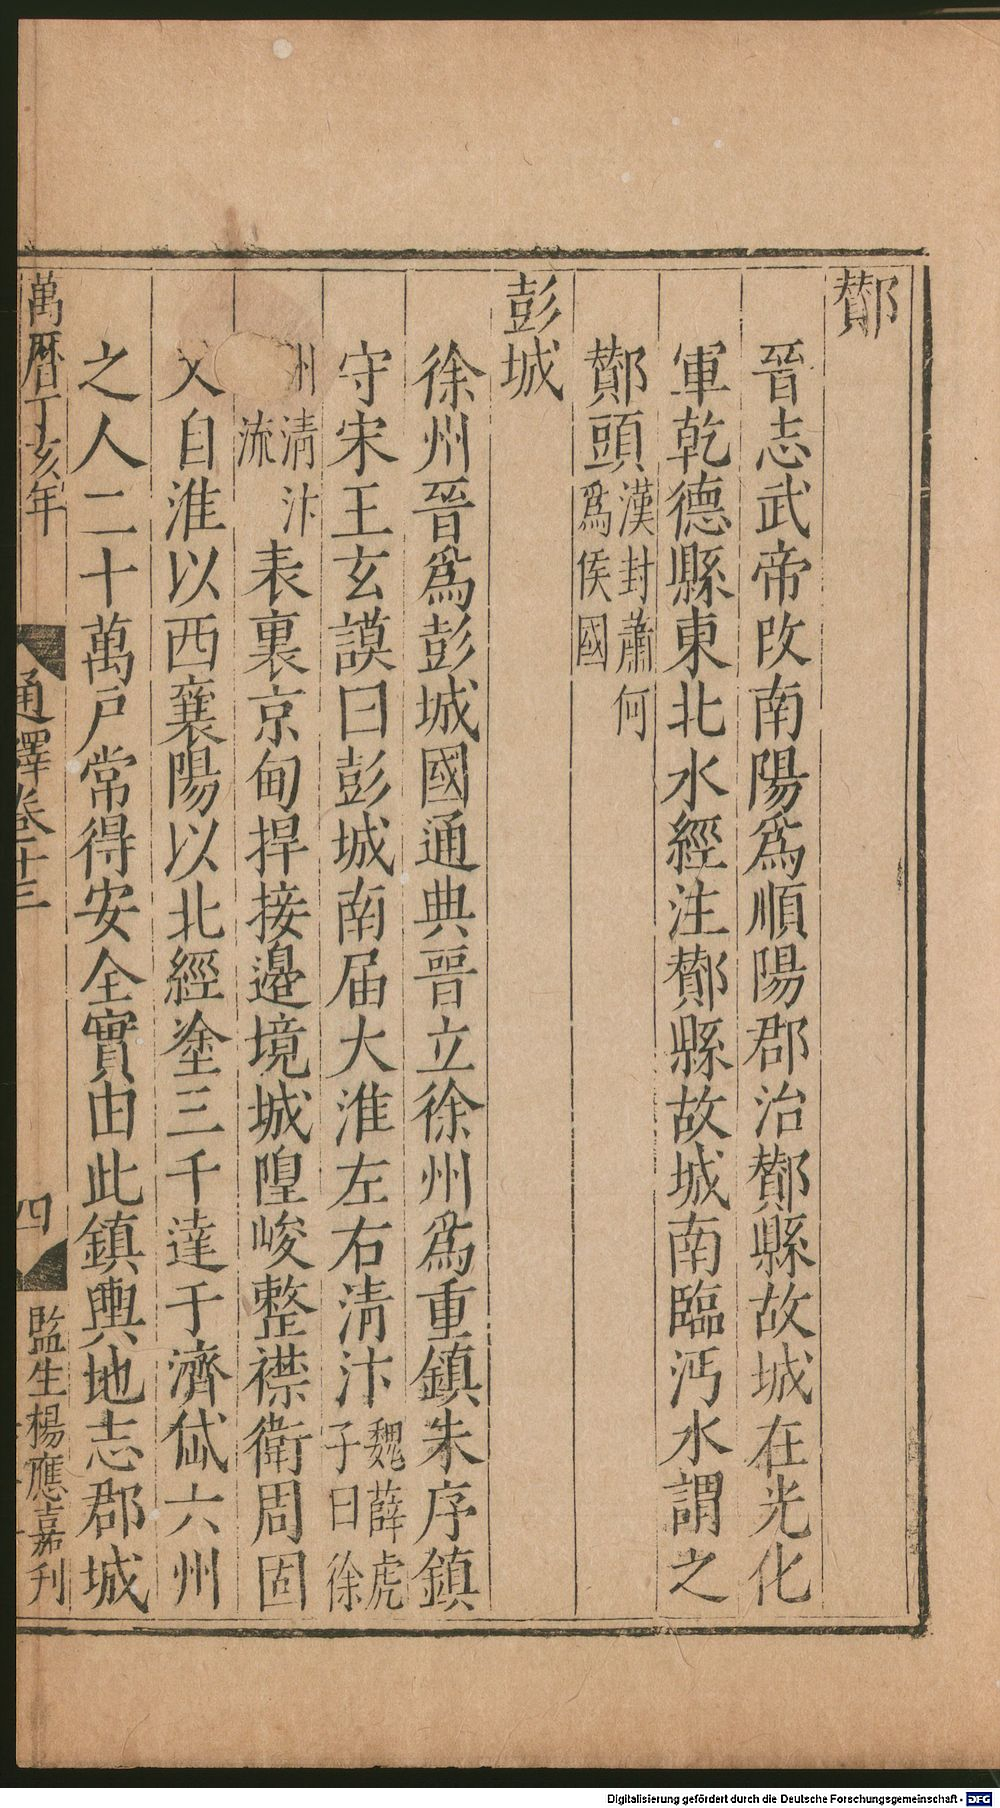 酇
晉志武帝改南陽爲順陽郡治酇縣故城在光化
軍乾德縣東北水經注酇縣故城南臨沔水謂之
酇頭漢封蕭何爲侯國
彭城
徐州晉爲彭城國通典晉立徐州爲重鎮朱序鎮
守宋王玄謨曰彭城南届大淮左右清汴魏薛虎子曰徐
州清汴流表裏京甸捍接邉境城隍峻整襟衛周固
又自淮以西襄陽以北經塗三千達于濟岱六州
之人二十萬戸常得安全實由此鎮輿地志郡城
萬曆丁亥年
通釋卷十三
四
監生楊應嘉刋
Digitalisierung gefördert durch die Deutsche Forschungsgemeinschaft - DFG